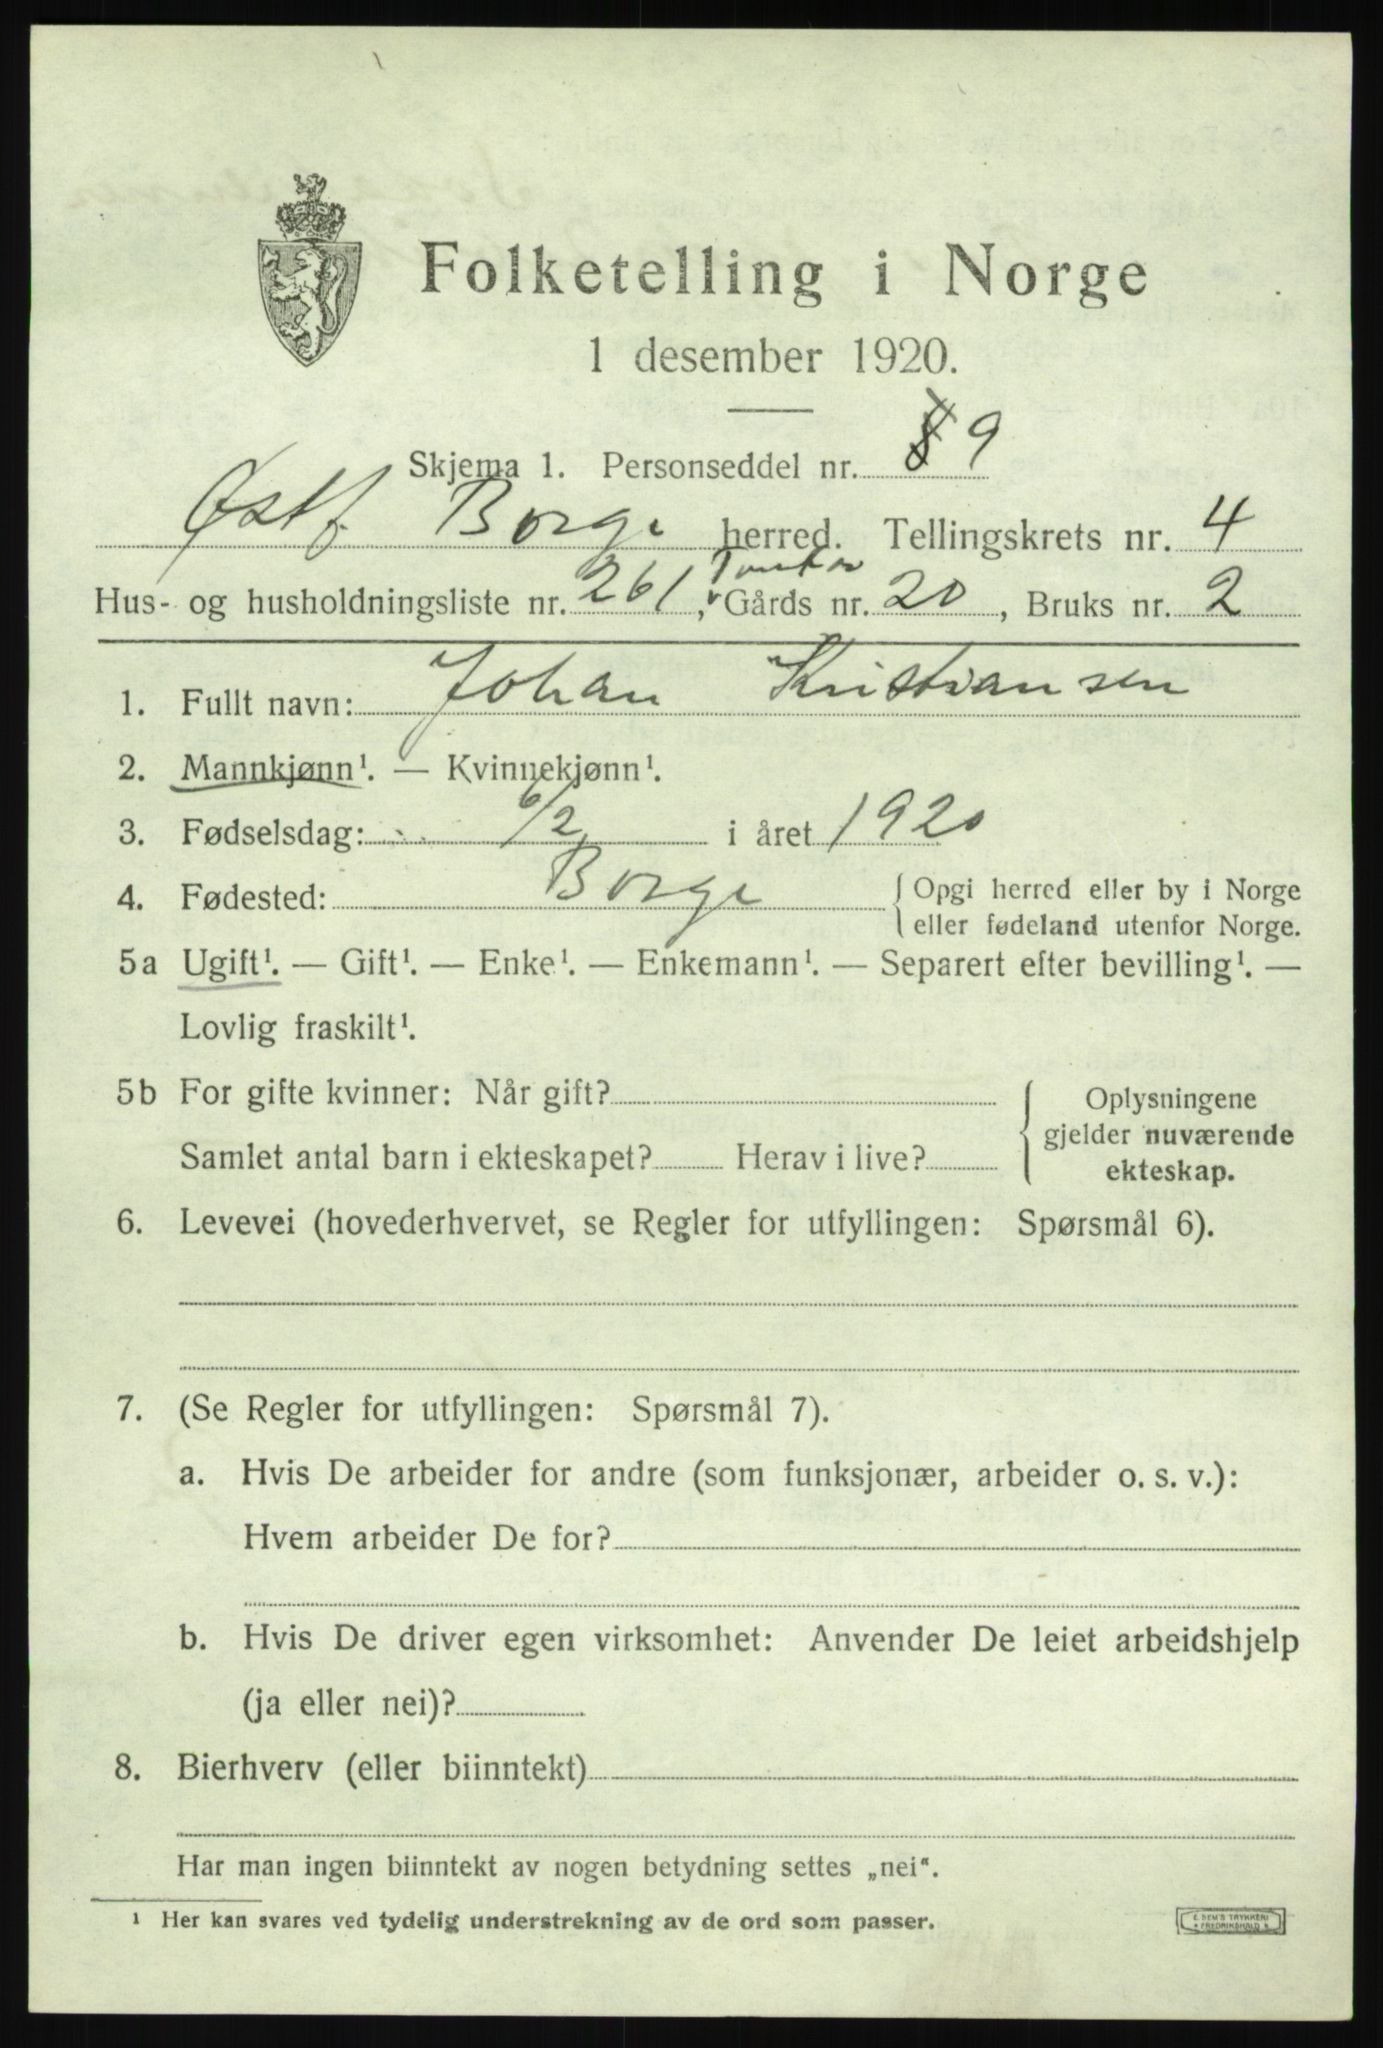 Folketelling i Norge
1 desember 1920.
Skjema 1. Personseddel nr. 8 9
Østf. Borge herred. Tellingskrets nr. 4
Hus- og husholdningsliste nr. 261, Gårds nr. 20, Bruks nr. 2
1. Fullt navn: Johan Kristiansen
2. Mannkjønn¹. — Kvinnekjønn¹.
3. Fødselsdag: 6/2 i året 1920
4. Fødested: Borge { Opgi herred eller by i Norge
eller fødeland utenfor Norge.
5a Ugift¹. — Gift¹. — Enke¹. — Enkemann¹. — Separert efter bevilling¹. —
Lovlig fraskilt¹.
5b For gifte kvinner: Når gift?
Samlet antal barn i ekteskapet? Herav i live?
{ Oplysningene
gjelder nuværende
ekteskap.
6. Levevei (hovederhvervet, se Regler for utfyllingen: Spørsmål 6).
7. (Se Regler for utfyllingen: Spørsmål 7).
a. Hvis De arbeider for andre (som funksjonær, arbeider o. s. v.):
Hvem arbeider De for?
b. Hvis De driver egen virksomhet: Anvender De leiet arbeidshjelp
(ja eller nei)?
8. Bierhverv (eller biinntekt)
Har man ingen biinntekt av nogen betydning settes „nei“.
¹ Her kan svares ved tydelig understrekning av de ord som passer.
E. SEM'S TRYKKERI
FREDRIKSHALD